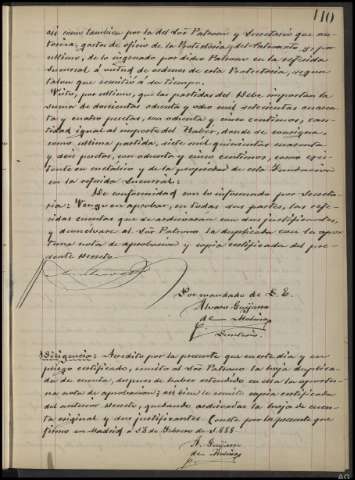 110
así como tambien por la del Sor Patrono y Secretario que au-
toriza, gastos de oficio de la Protectoria y del Patronato y, por
último, de lo ingresado por dicho Patrono en la referida
Sucursal á virtud de ordenes de esta Protectoria, segun
talon que remitió á
Visto, por último, que las partidas del Debe importan la
suma de doscientas ochenta y ocho mil setecientas cuaren-
ta y cuatro pesetas, con ochenta y cinco céntimos, can-
tidad igual al importe del Haber, donde se consigna,
como última partida, siete mil quinientas cuarenta
y seis pesetas, con ochenta y cinco céntimos, como exis-
tente en metálico y de la propiedad de esta Fundacion
en la referida Sucursal:
De conformidad con lo informado por Secreta-
ria: Vengo en aprobar, en todas sus partes, las refe-
ridas cuentas que se archivarán con sus justificantes,
y devuelvase al Sor Patrono la duplicada con la opor-
tuna nota de aprobacion y copia certificada del pre-
sente decreto.
Por mandado de S. E.
Alvaro Guijarro
de Molina
Secretario.
Diligencia: Acredito por la presente que en este dia y en
pliego certificado, remito al Sor Patrono la hoja duplica-
da de cuenta, despues de haber estendido en ella la oportu-
na nota de aprobacion; asi bien le remito copia certificada
del anterior decreto, quedando archivadas la hoja de cuen-
ta original y sus justificantes. Consta por la presente que
firmo en Madrid á 23 de Febrero de 1.888.
A. Guijarro
de Molina